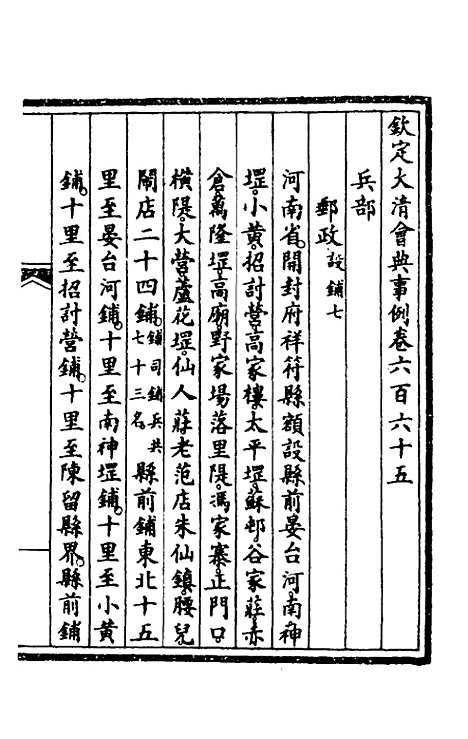 欽定大清會典事例卷六百六十五
兵部
郵政設鋪七
河南省開封府祥符縣額設縣前晏台河南神
堽小黃招討營高家樓太平堽蘇邨谷家莊赤
倉萬隆堽高廟野家場落里隄馮家寨正門口
橫隄大營蘆花堽仙人莊老范店朱仙鎮腰兒
鬧店二十四鋪鋪司鋪兵共七十三名縣前鋪東北十五
里至晏台河鋪十里至南神堽鋪十里至小黃
鋪十里至招討營鋪十里至陳留縣界縣前鋪